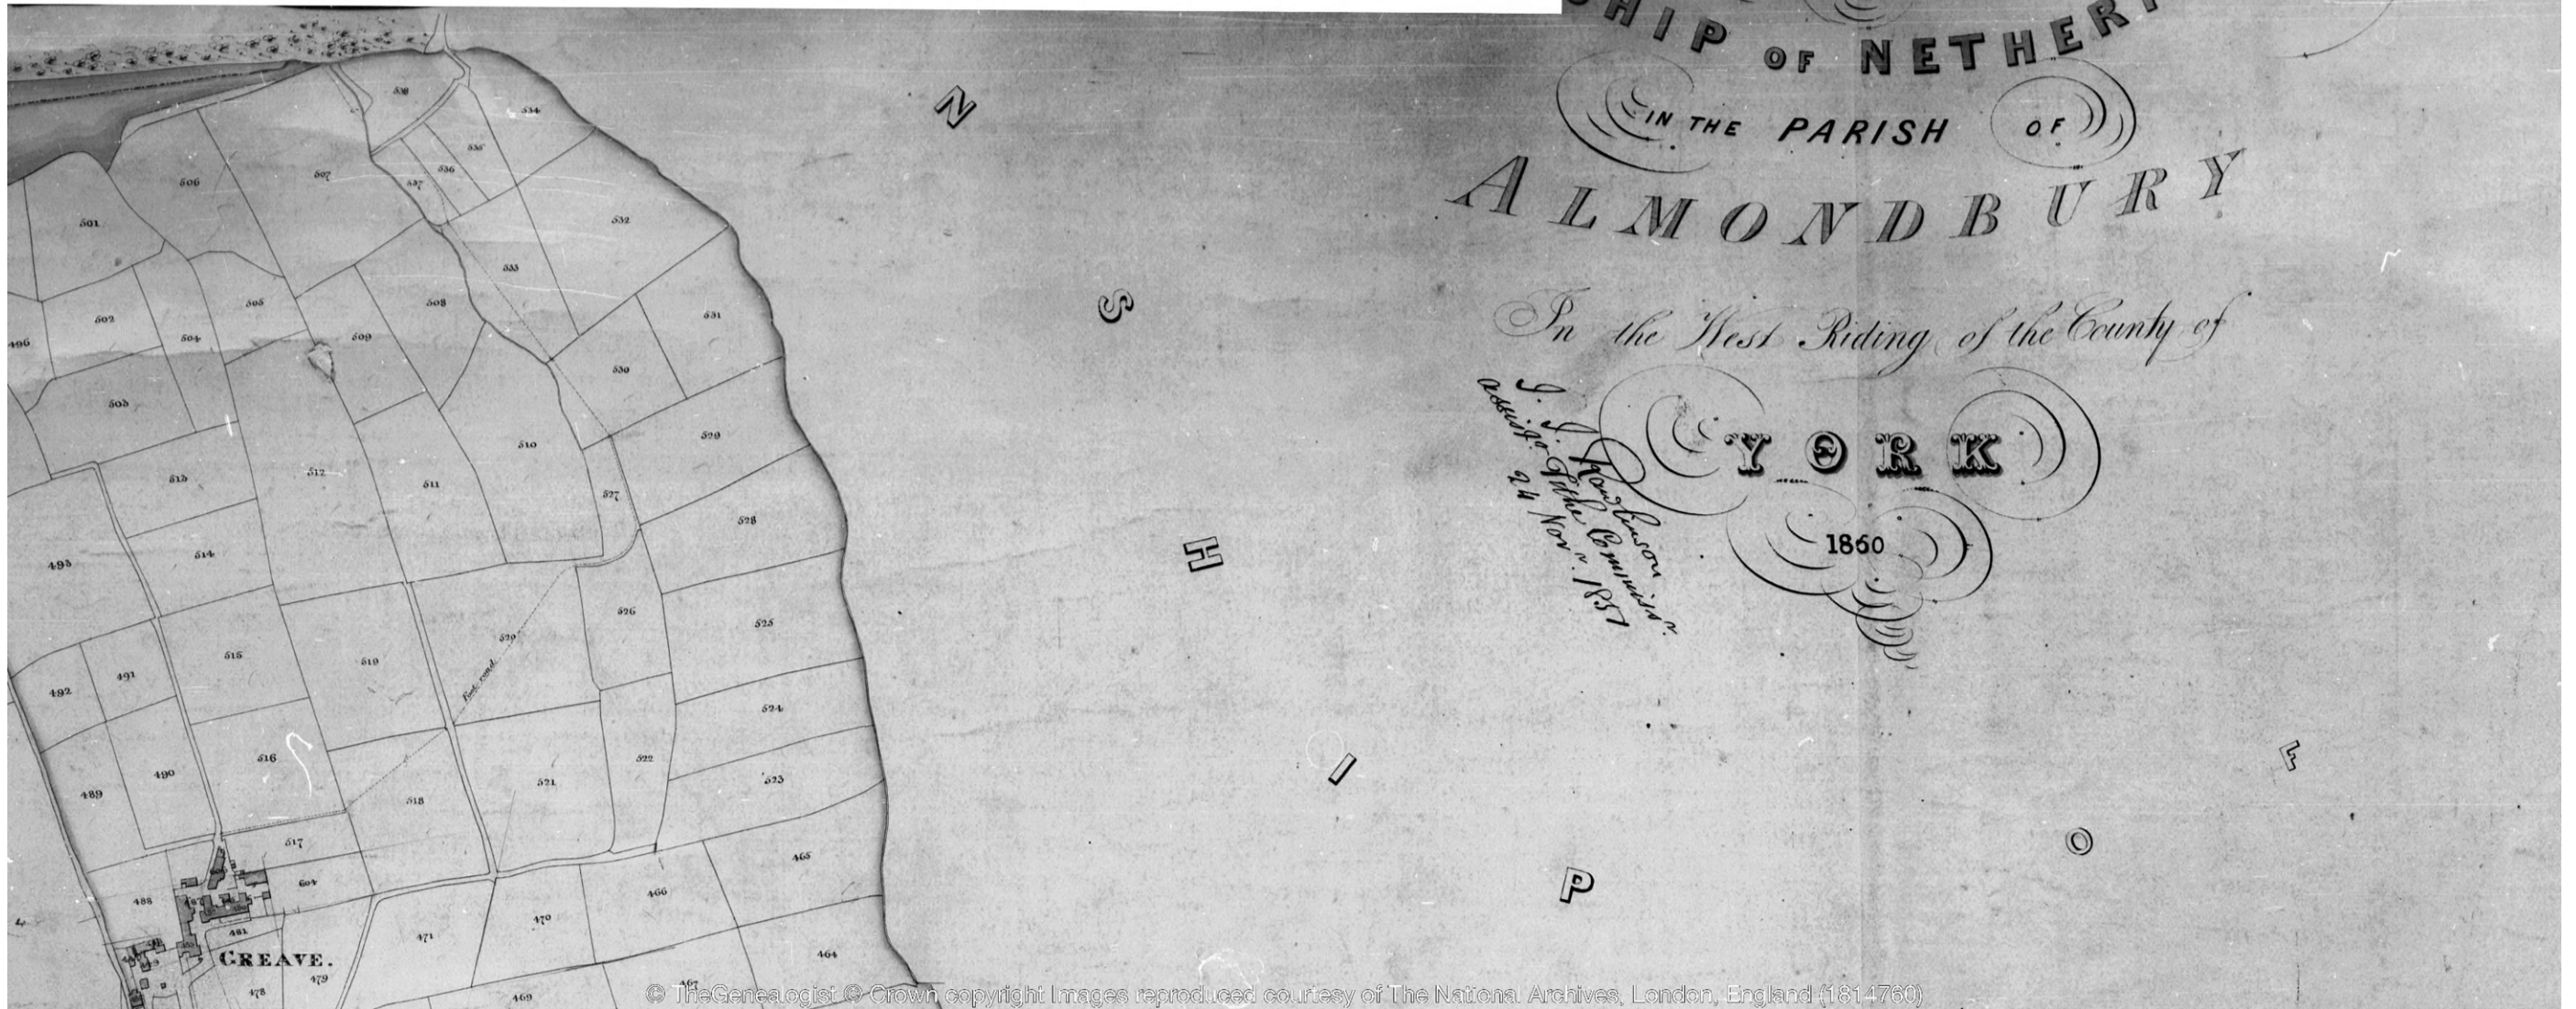 SHIP OF NETHER
IN THE PARISH OF
ALMONDBURY
In the West Riding of the County of
YORK
1850
J. J. Rawlinson
assist. Tithe Commissr.
24 Novr. 1851
N
S
H
I
P
O
F
538
534
535
536
537
506
507
501
532
533
502
505
508
504
509
531
496
530
503
529
510
513
512
511
527
528
514
493
526
525
515
519
520
Foot road
492
491
524
516
522
523
490
489
521
518
517
465
604
466
488
470
471
481
464
GREAVE.
479
478
467
469
© TheGenealogist © Crown copyright Images reproduced courtesy of The National Archives, London, England (1814760)